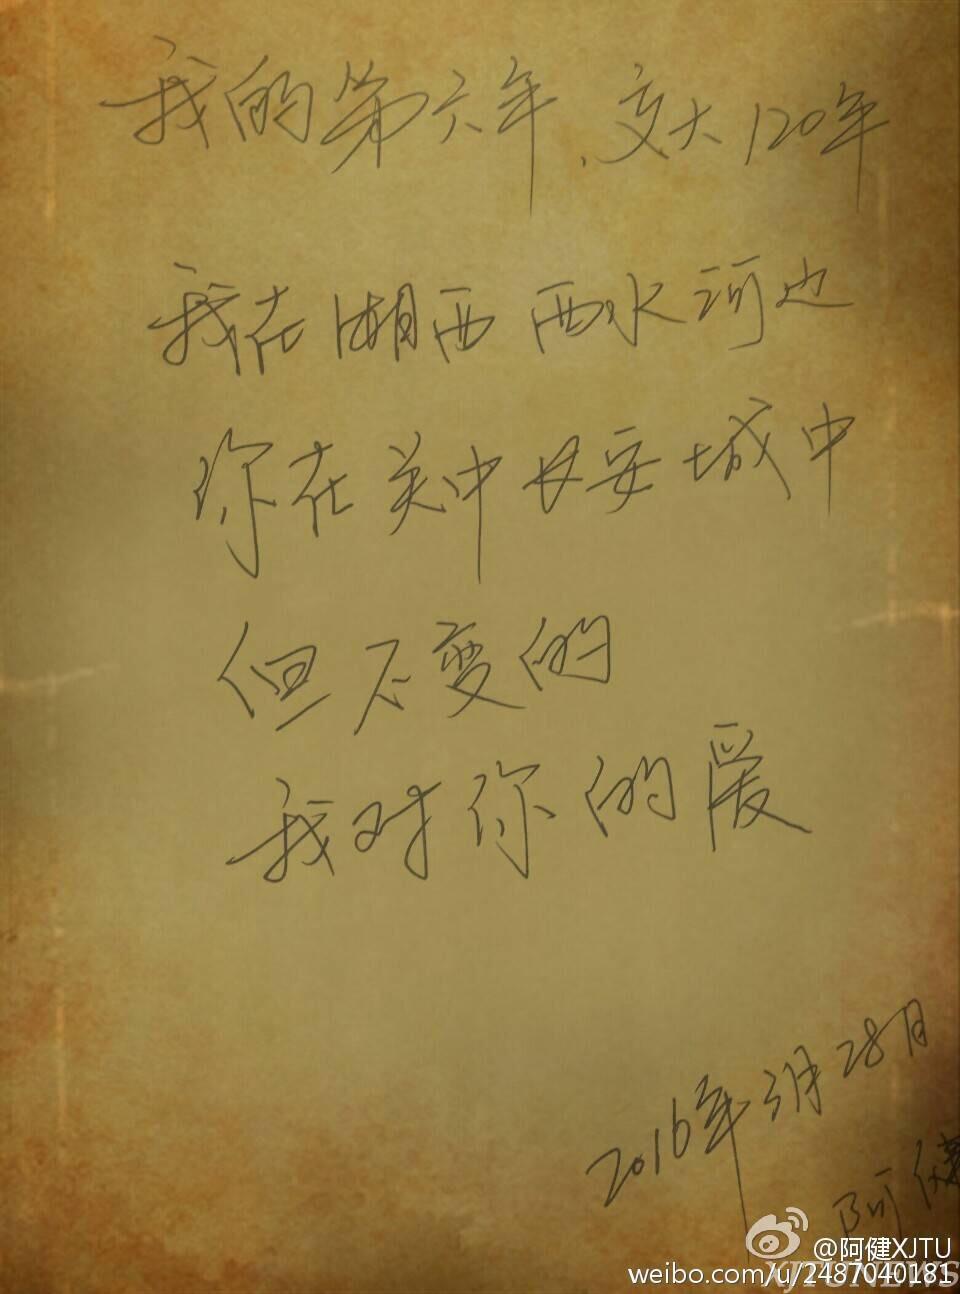 我的第六年、交大120年
我在湘西酉水河边
你在关中长安城中
但不变的
我对你的爱
2016年3月28日
阿健
@阿健XJTU
XJTUNEWS
weibo.com/u/2487040181